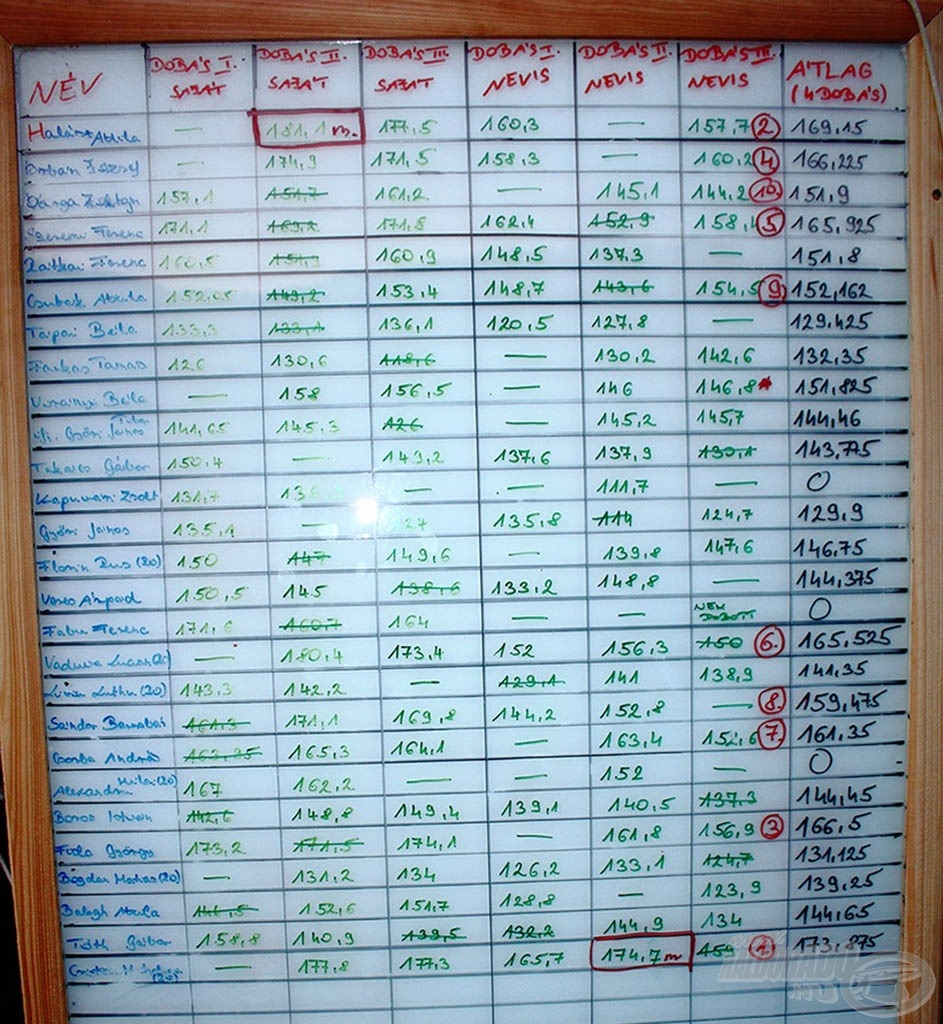 NÉV DOBÁS I. SAJÁT DOBÁS II. SAJÁT DOBÁS III. SAJÁT DOBÁS I. NEVIS DOBÁS II. NEVIS DOBÁS III. NEVIS ÁTLAG (4 DOBÁS)
Attila — 181,1 m. 177,5 160,3 — 157,7 2 169,15
— 174,9 171,5 158,3 — 160,2 4. 166,225
Varga 157,1 151,7 161,2 — 145,1 144,2 10. 151,9
Ferenc 171,1 169,2 171,8 162,4 152,9 158,4 5 165,925
Ferenc 160,5 151,9 160,9 148,5 137,3 — 151,8
Attila 152,05 149,2 153,4 148,7 143,6 154,5 9. 152,162
Béla 133,3 133,1 136,1 120,5 127,8 — 129,425
Farkas Tamás 126 130,6 118,6 — 130,2 142,6 132,35
Béla — 158 156,5 — 146 146,8 151,825
Győri János 141,65 145,3 126 — 145,2 145,7 144,46
Takács Gábor 150,4 — 149,2 137,6 137,9 130,1 143,775
Kapuvári Zsolt 131,7 — — 111,7 — 0
Győri János 135,1 — 135,8 114 124,7 129,9
Florin Rus (20) 150 147 149,6 — 139,8 147,6 146,75
Veres Árpád 150,5 145 138,6 133,2 148,8 — 144,375
Ferenc 171,6 160,7 164 — — NEM DOBOTT 0
— 180,4 173,4 152 156,3 150 6. 165,525
(20) 143,3 142,2 — 129,1 141 138,9 141,35
Sándor Barnabás 161,3 171,1 169,8 144,2 152,8 — 8. 159,475
András 163,85 165,3 164,1 — 163,4 152,6 7. 161,35
Alexandru (20) 167 162,2 — — 152 — 0
Boros István 142,6 148,8 149,4 139,1 140,5 137,3 144,45
György 173,2 171,5 174,1 — 161,8 156,9 3 166,5
Bogdan (20) — 131,2 134 126,2 133,1 124,7 131,125
Balogh Attila 146,5 152,6 151,7 128,8 — 123,9 139,25
Tóth Gábor 158,8 140,9 139,5 132,2 144,9 134 144,65
(20) — 177,8 177,3 165,7 174,7 m 159 1. 173,875